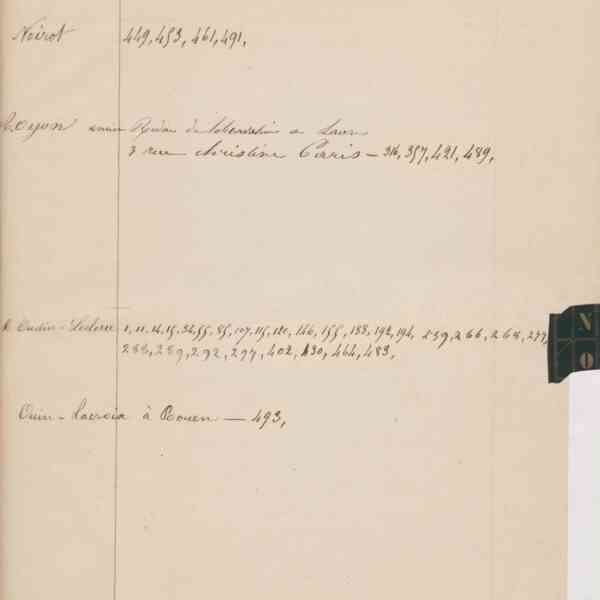 Noirot 449, 453, 461, 491,
Noyon
3 rue Christine Paris — 316, 357, 421, 489,
Oudin-Leclerc 1, 11, 14, 15, 34, 55, 85, 107, 115, 120, 146, 155, 188, 192, 194, 239, 266, 268, 277,
288, 289, 292, 297, 402, 430, 464, 483,
Ouin-Lacroix à Rouen — 493,
N
O